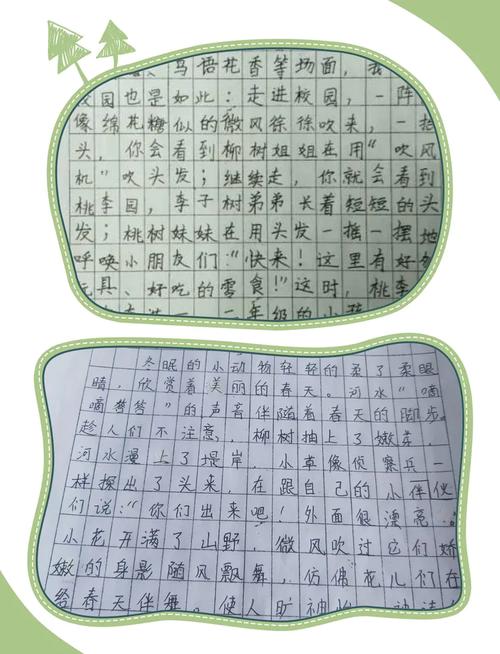 鸟语花香等场面,
校园也是如此:走进校园,一阵
像绵花糖似的微风徐徐吹来,一抬
头,你会看到柳树姐姐在用“吹风
机”吹头发;继续走,你就会看到
桃李园,李子树弟弟长着短短的头
发;桃树妹妹在用头发一摇一摆地
呼唤小朋友们:“快来!这里有好
玩具、好吃的零食!”这时,桃李
一年级的小孩
冬眠的小动物轻轻的柔了柔眼
睛,欣赏着美丽的春天。河水“嘀
嘀嗒嗒”的声音伴随着春天的脚步。
趁人们不注意,柳树抽上了嫩芽,
河水漫上了堤岸,小草像侦察兵一
样探出了头来,在跟自己的小伙伴
们说:“你们出来吧!外面很漂亮。
小花开满了山野,微风吹过它们娇
嫩的身影随风飘舞,仿佛花儿们在
给春天伴舞。使人旷神